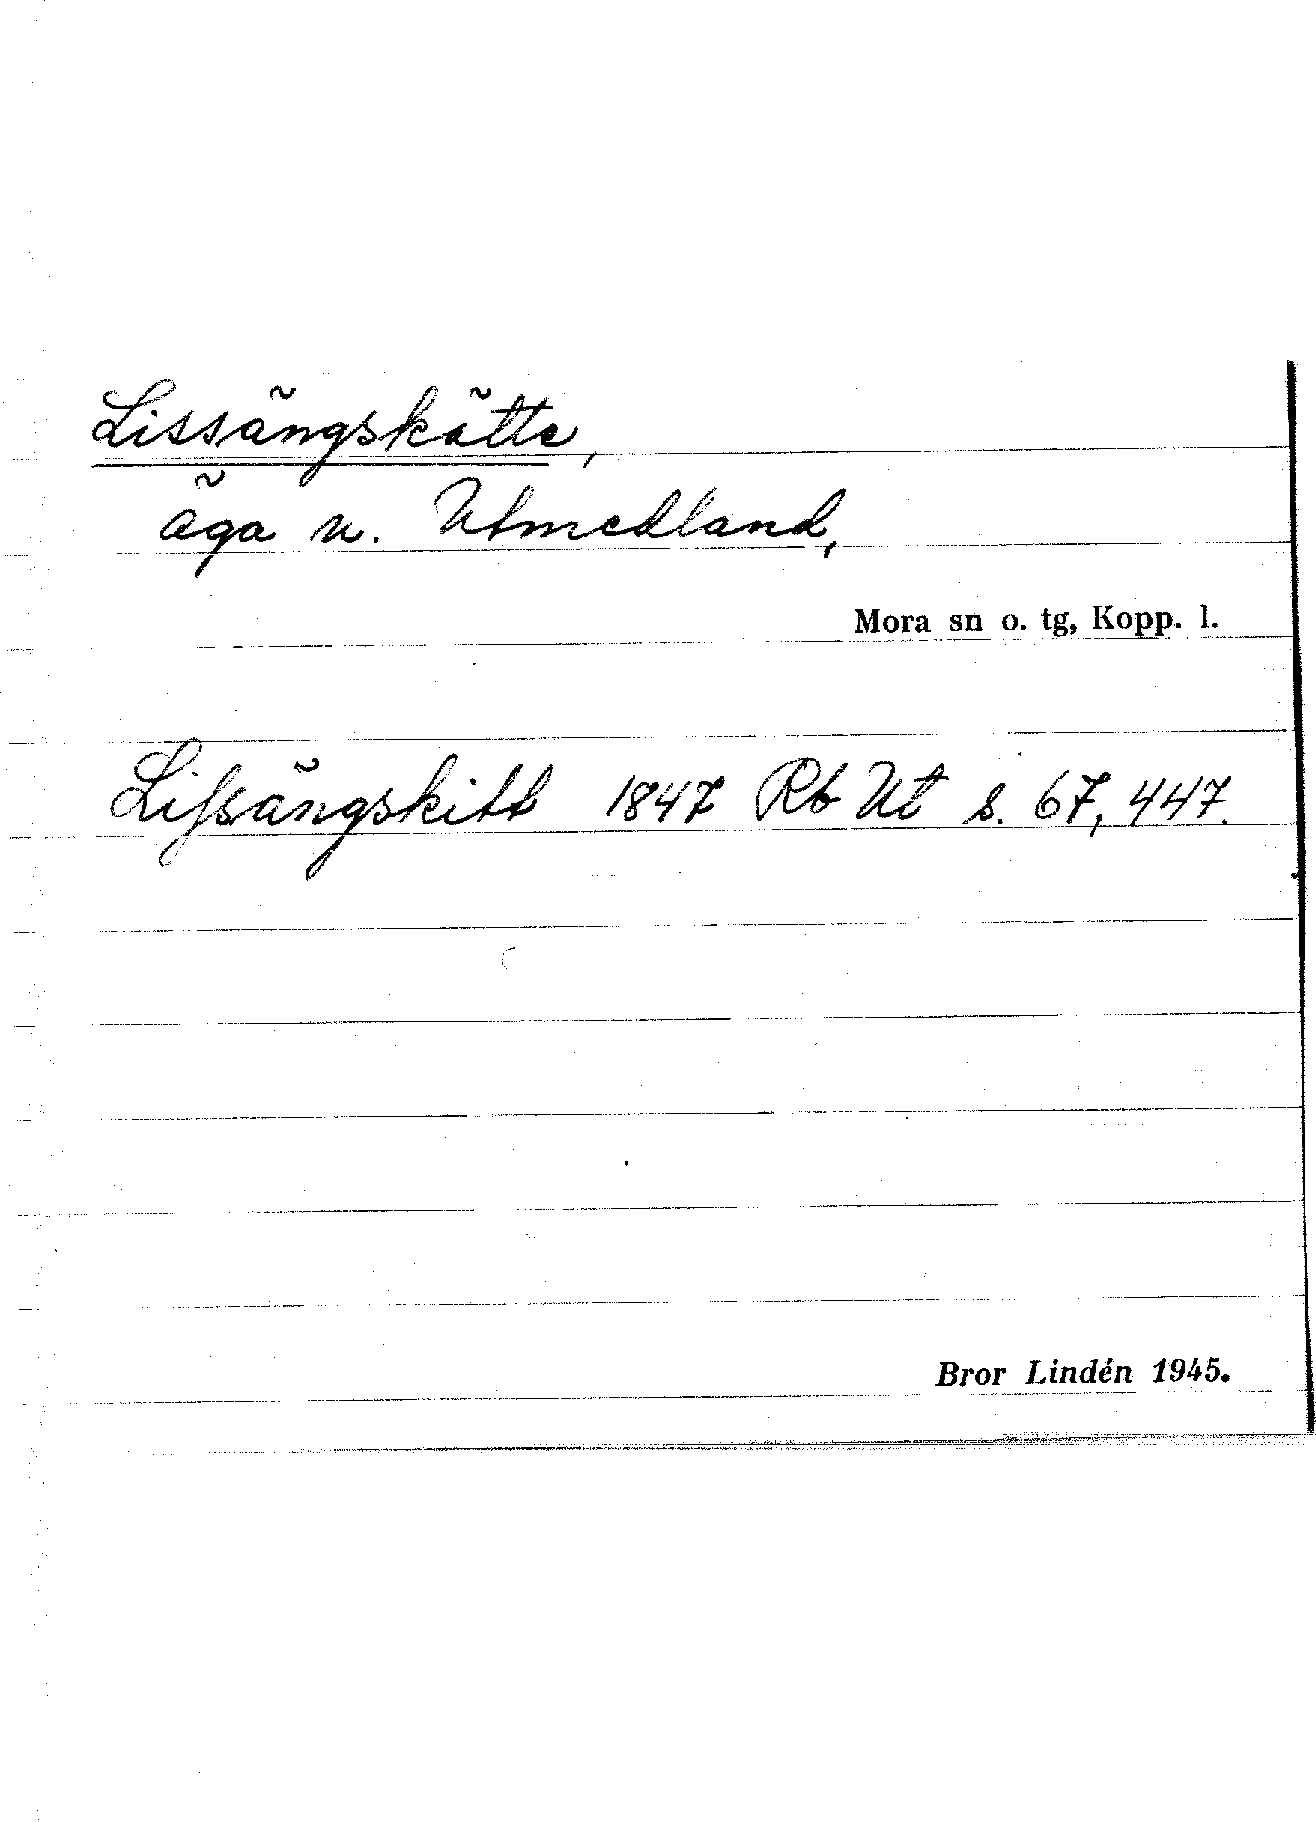 Lissängskätte,
äga u. Utmedland,
Mora sn o. tg, Kopp. l.
Lifsängskitt 1847 Rb Ut s. 67, 447.
Bror Lindén 1945.